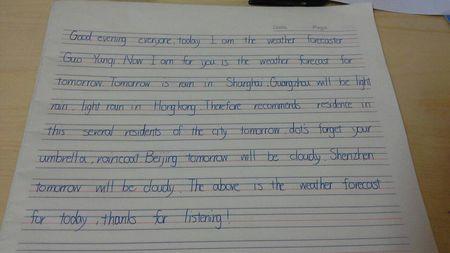 Date Page
Good evening everyone, today I am the weather forecaster
Guo Yanqi. Now I am for you is the weather forecast for
tomorrow. Tomorrow is rain in Shanghai. Guangzhou will be light
rain, light rain in Hongkong. Therefore recommends residence in
this several residents of the city tomorrow, dots forget your
umbrella, raincoat. Beijing tomorrow will be cloudy. Shenzhen
tomorrow will be cloudy. The above is the weather forecast
for today, thanks for listening!